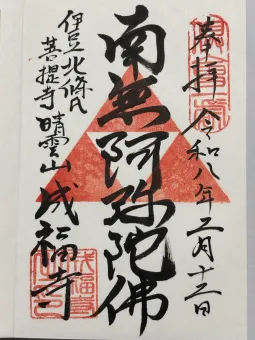 奉拝 令和八年二月十三日
南無阿弥陀佛
伊豆北條氏
菩提寺 晴雲山 成福寺